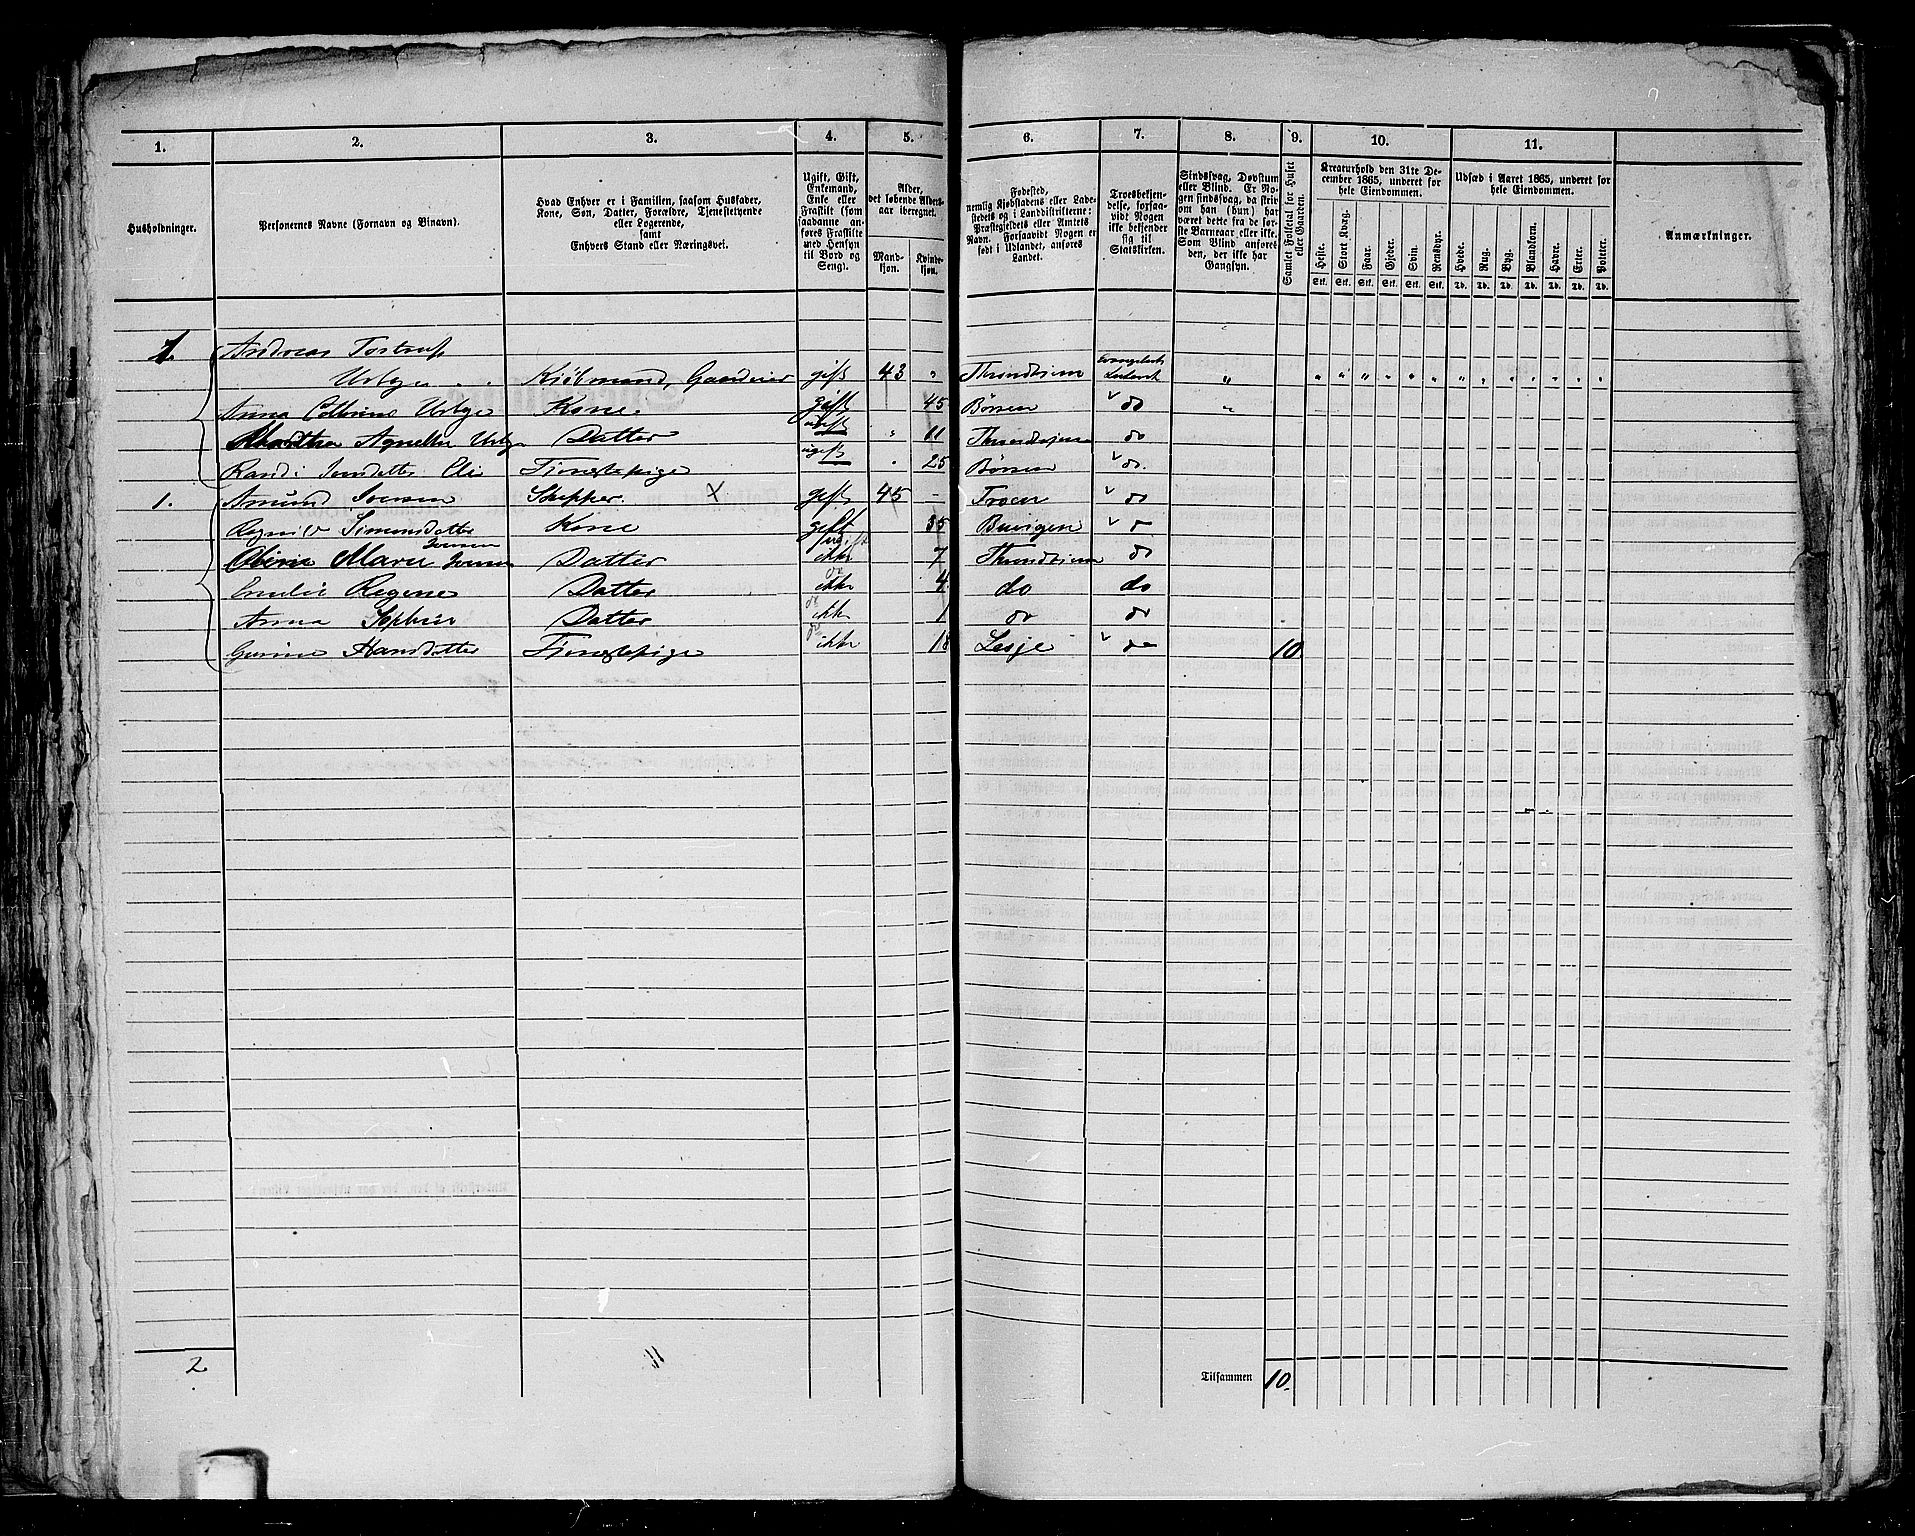 1. 2. 3. 4. 5. 6. 7. 8. 9. 10. 11.
Husholdninger.
Personernes Navne (Fornavn og Binavn).
Hvad Enhver er i Familien, saasom Husfader,
Kone, Søn, Datter, Forældre, Tjenestetyende
eller Logerende,
samt
Enhvers Stand eller Næringsvei.
Ugift, Gift,
Enkemand,
Enke eller
Fraskilt (som
saadanne an-
føres Fraskilte
med Hensyn
til Bord og
Seng).
Alder,
det løbende Alders-
aar iberegnet.
Mand-
kjøn.
Kvinde-
kjøn.
Fødested,
nemlig Kjøbstadens eller Lade-
stedets og i Landdistrikterne:
Præstegjeldets eller Amtets
Navn. Forsaavidt Nogen er
født i Udlandet, anføres
Landet.
Troesbekjen-
delse, forsaa-
vidt Nogen
ikke bekjender
sig til
Statskirken.
Sindssvag, Døvstum
eller Blind. Er No-
gen sindssvag, da skriv
om han (hun) har
været dette fra de før-
ste Barneaar eller ikke.
Som Blind anføres
den, der ikke har
Gangsyn.
Samlet Folketal for Huset
eller Gaarden.
Kreaturhold den 31te De-
cember 1865, underet for
hele Eiendommen.
Heste. Stort Kvæg. Faar. Gjeder. Svin. Rensdyr.
Stk. Stk. Stk. Stk. Stk. Stk.
Udsæd i Aaret 1865, underet for
hele Eiendommen.
Hvede. Rug. Byg. Blandkorn. Havre. Erter. Poteter.
Td. Td. Td. Td. Td. Td. Td.
Anmærkninger.
1. Andreas Tostrup
Urbye Kjøbmand, Gaardeier gift 43 " Throndhjem Evangelisk Luthersk " " " " " " " " " " " " " "
Anna Cathrine Urbye Kone. gift 45 Børsen do "
Agnette Urbye Datter ugift " 11 Throndhjem do
Randi Datter Tjenestepige ugift 25 Børsen do.
1. Amund Iversen Skipper. X gift 45 - do
Simonsdatter Kone gift 35 Buvigen do
Marie Iversen Datter ikke gift 7 Throndhjem do
Emilie Regine Datter ikke do 4 do do
Anna Sophie Datter ikke do 1 do do
Gurine Hansdatter Tjenestepige ikke do 18 Lesje do 10
2 11 Tilsammen 10.